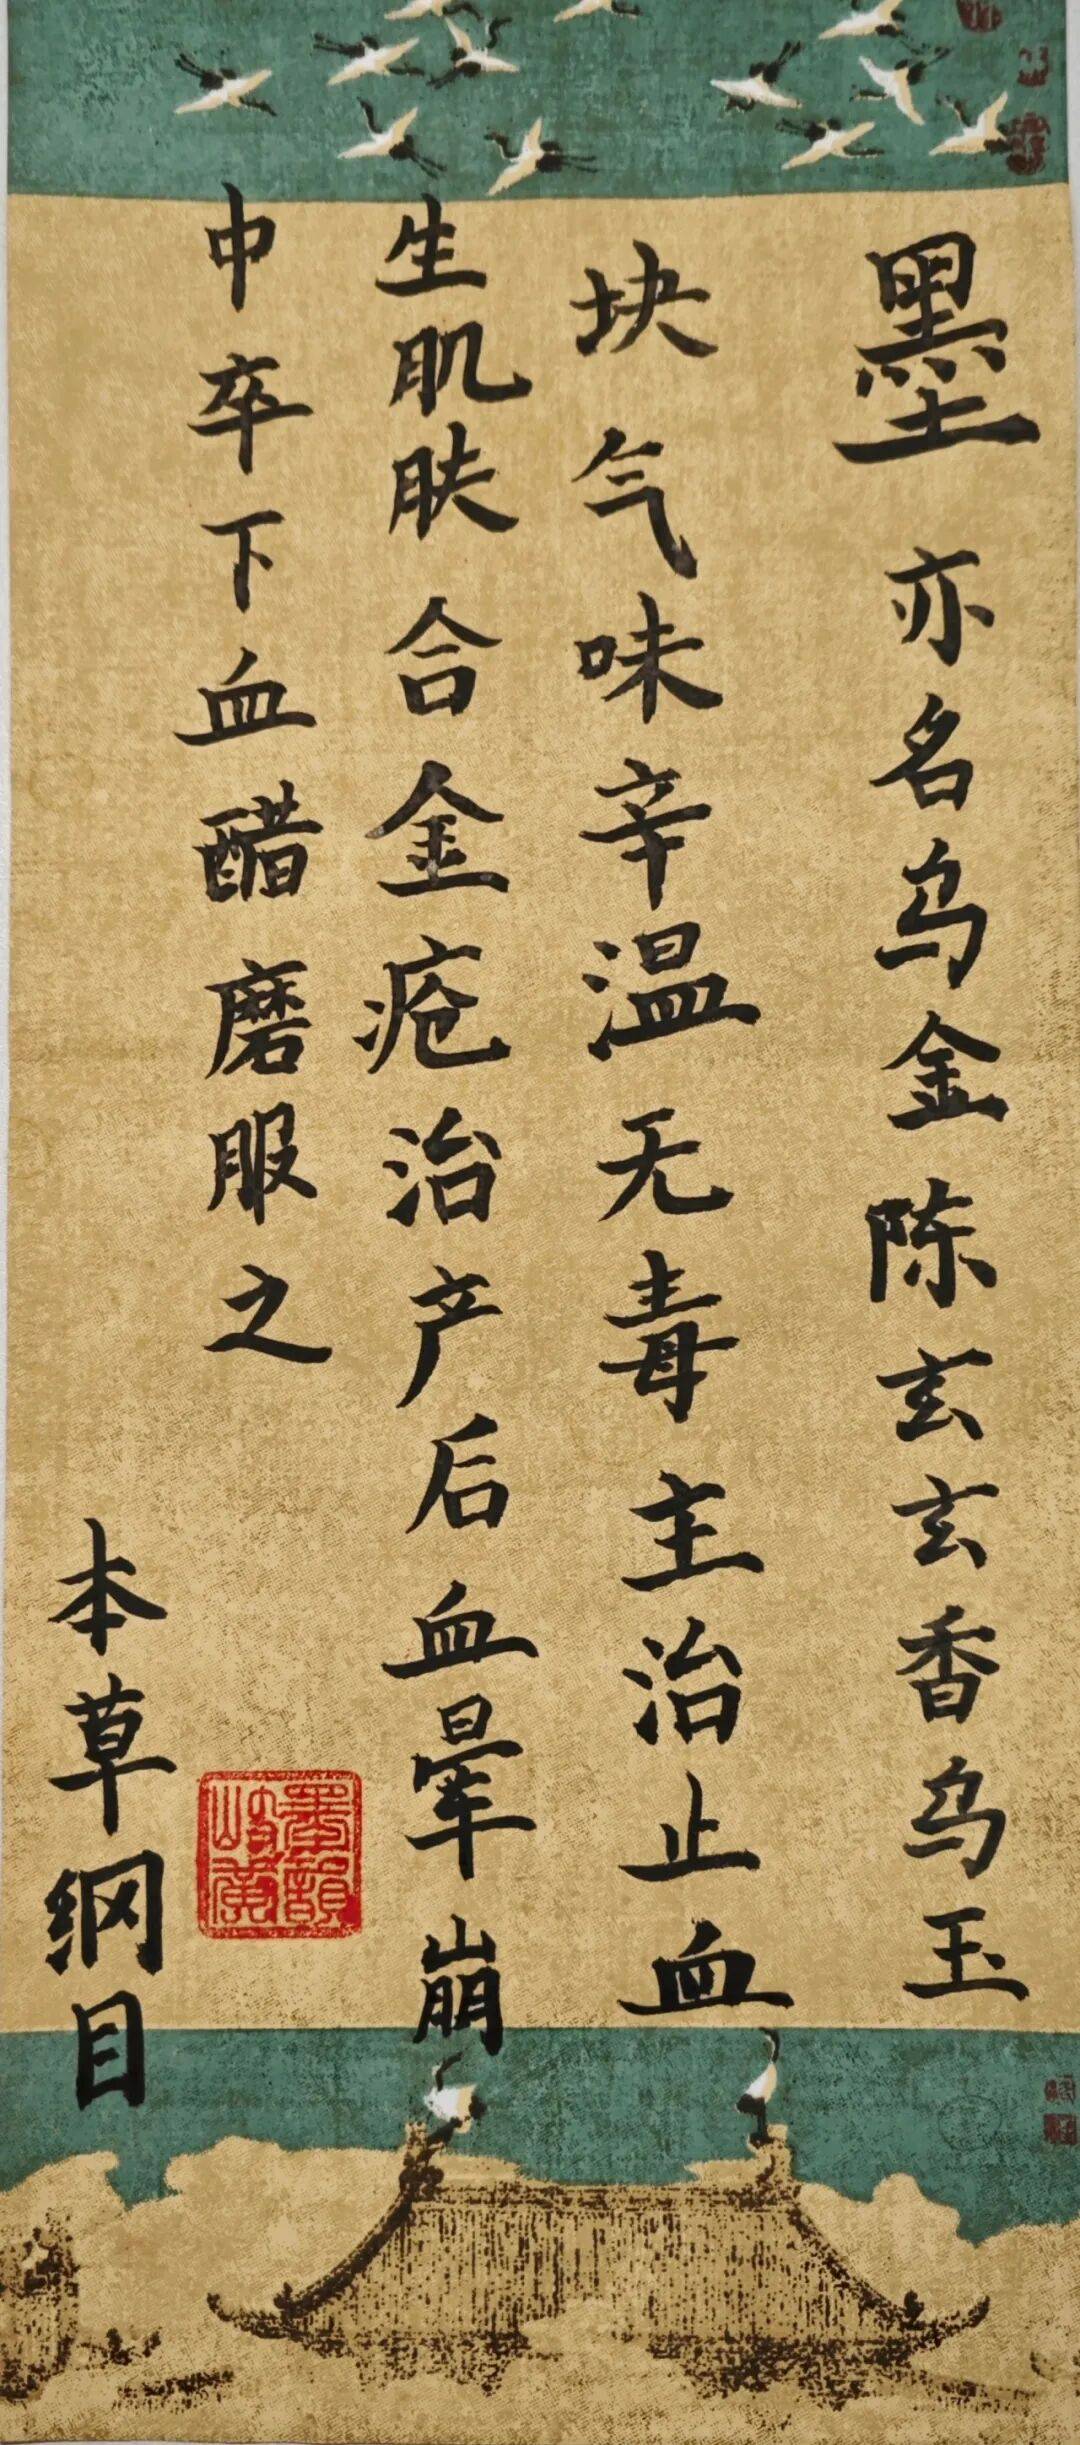 墨亦名乌金陈玄玄香乌玉
块气味辛温无毒主治止血
生肌肤合金疮治产后血晕崩
中卒下血醋磨服之
本草纲目